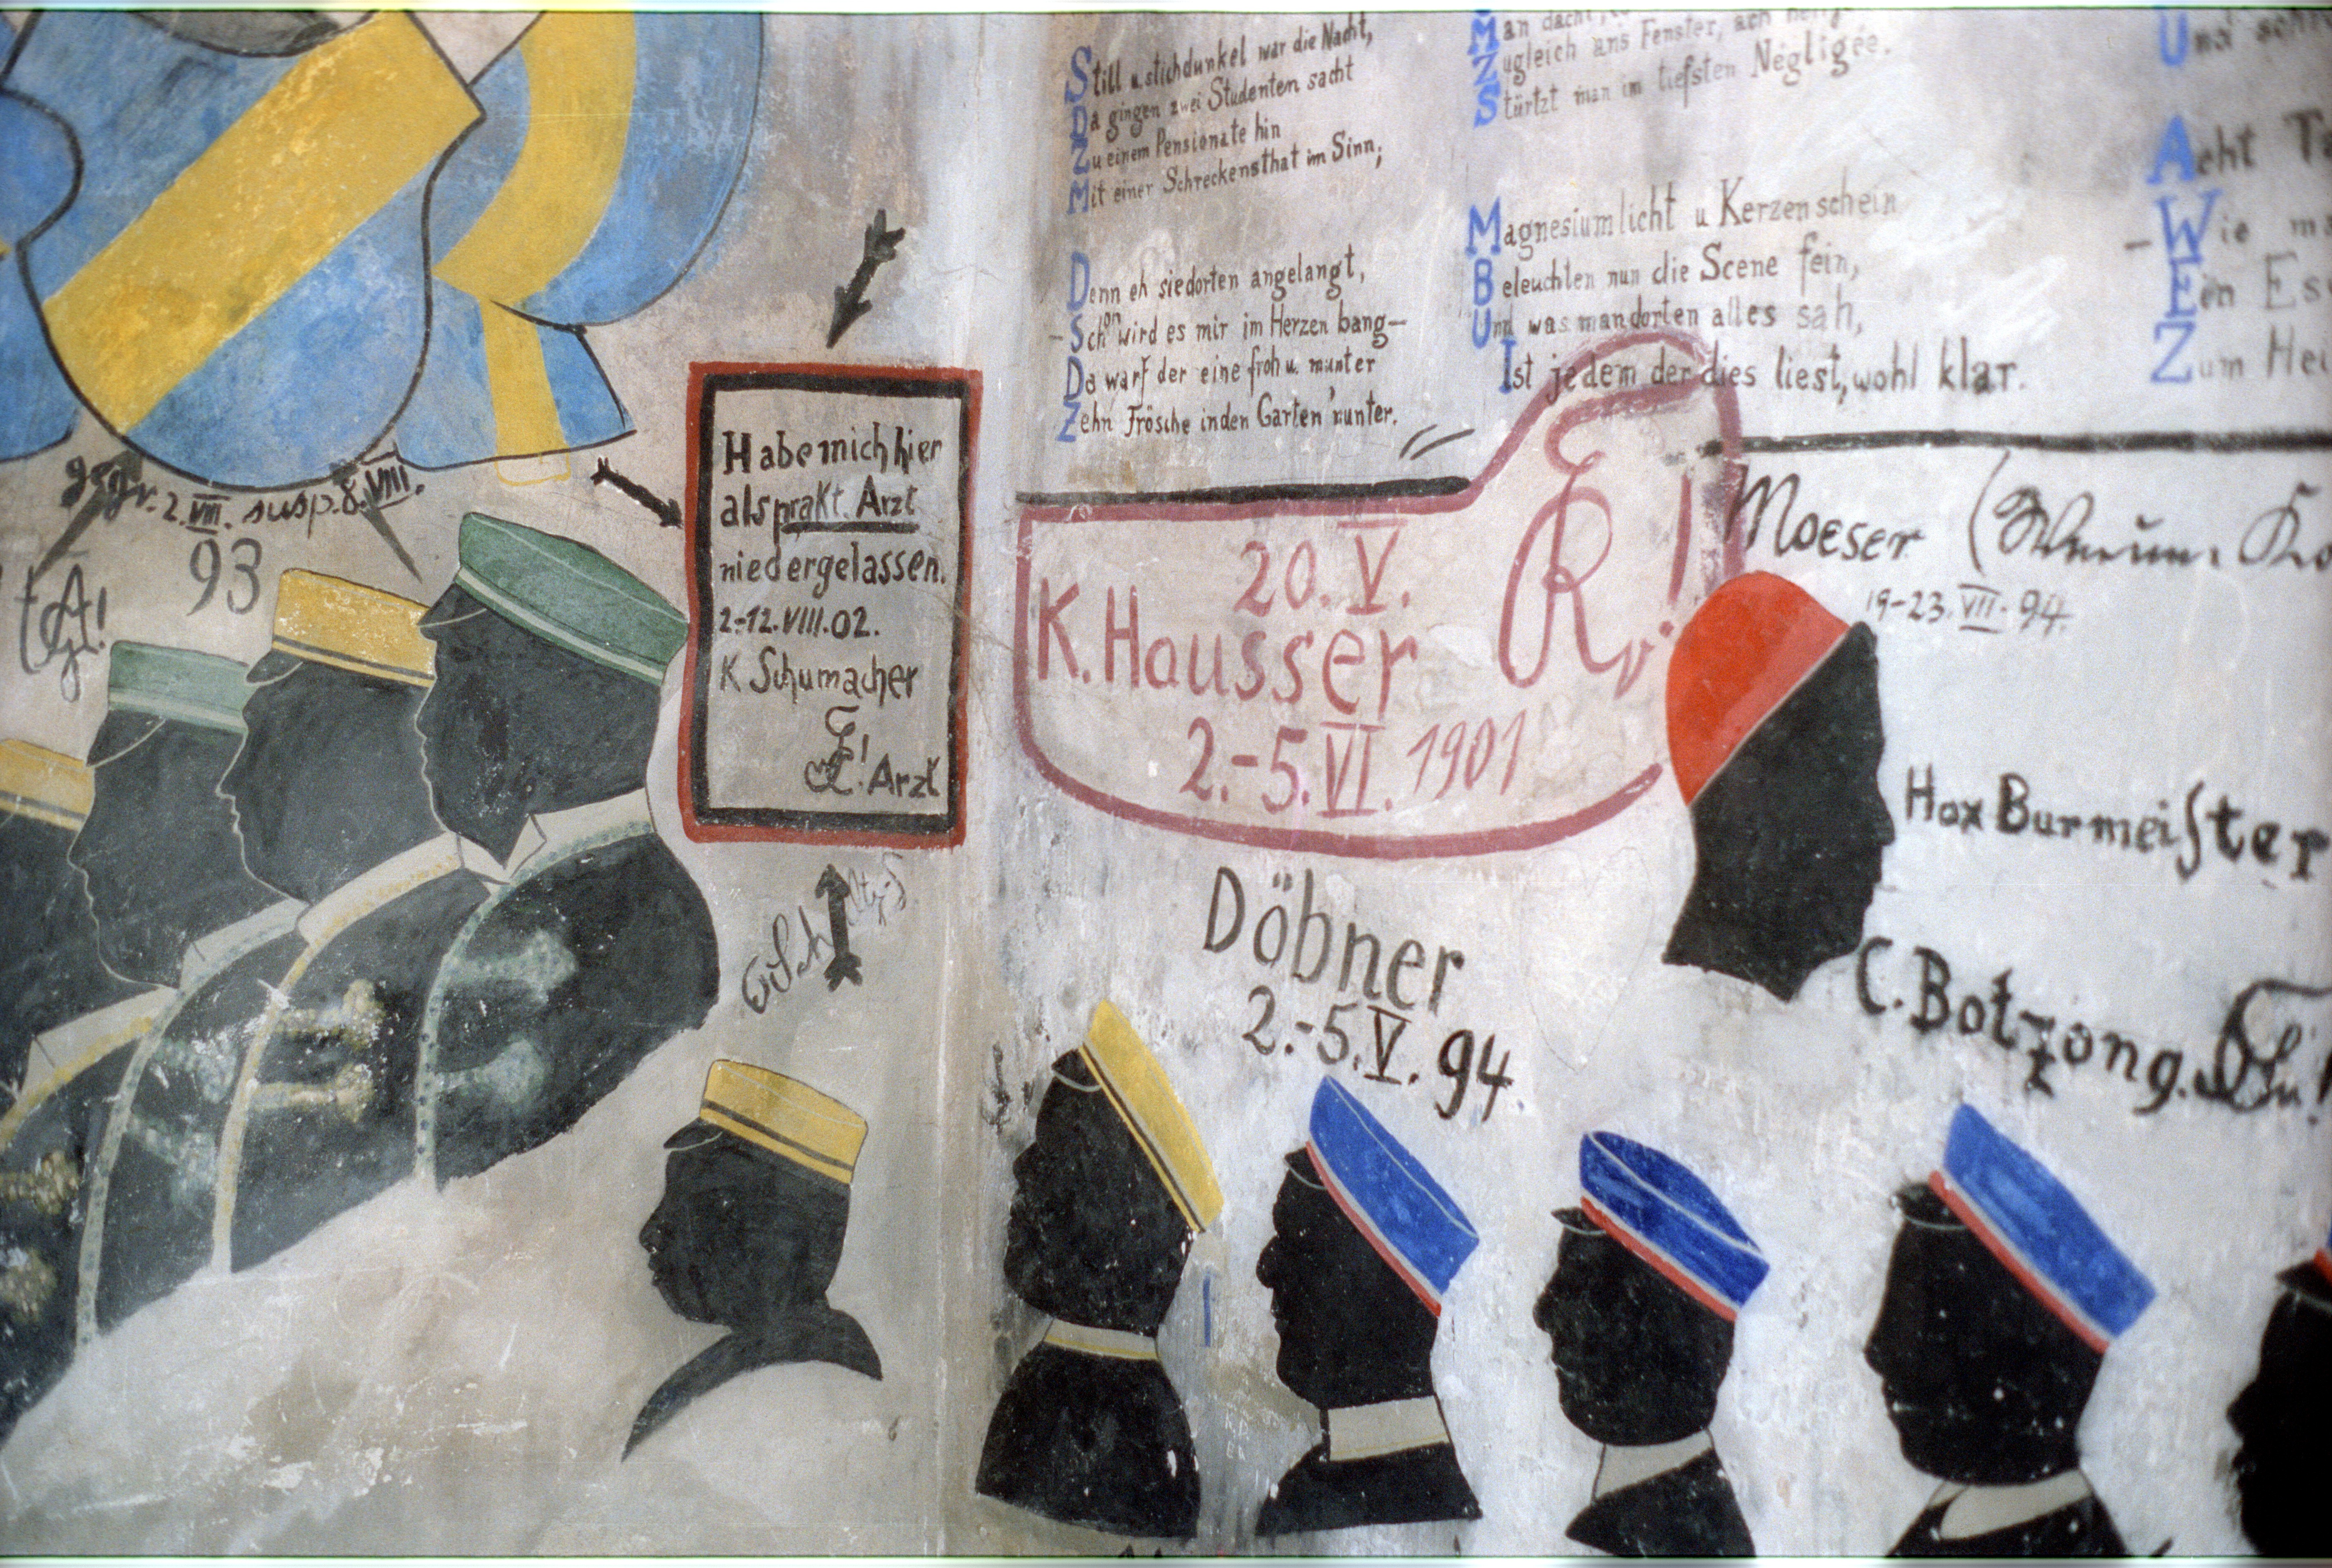 Still u. stichdunkel war die Nacht,
Da gingen zwei Studenten sacht
Zu einem Pensionate hin
Mit einer Schreckensthat im Sinn;
Denn eh sie dorten angelangt,
– Schon wird es mir im Herzen bang –
Da warf der eine froh u. munter
Zehn Frösche in den Garten 'nunter.
Man dacht
Zugleich ans Fenster, ach
Stürtzt man im tiefsten Négligée.
Magnesiumlicht u Kerzenschein
Beleuchten nun die Scene fein,
Und was man dorten alles sah,
Ist jedem der dies liest, wohl klar.
Und
Acht
– Wie
Ein
Zum
gegr. 2. VIII. susp. 8. VIII.
93
Habe mich hier
als prakt. Arzt
niedergelassen.
2-12. VIII. 02.
K Schumacher
Arzt
20. V.
K. Hausser
2.-5. VI. 1901
Moeser
19-23. VII. 94.
Hax Burmeister
C. Botzong.
Döbner
2.-5. V. 94.